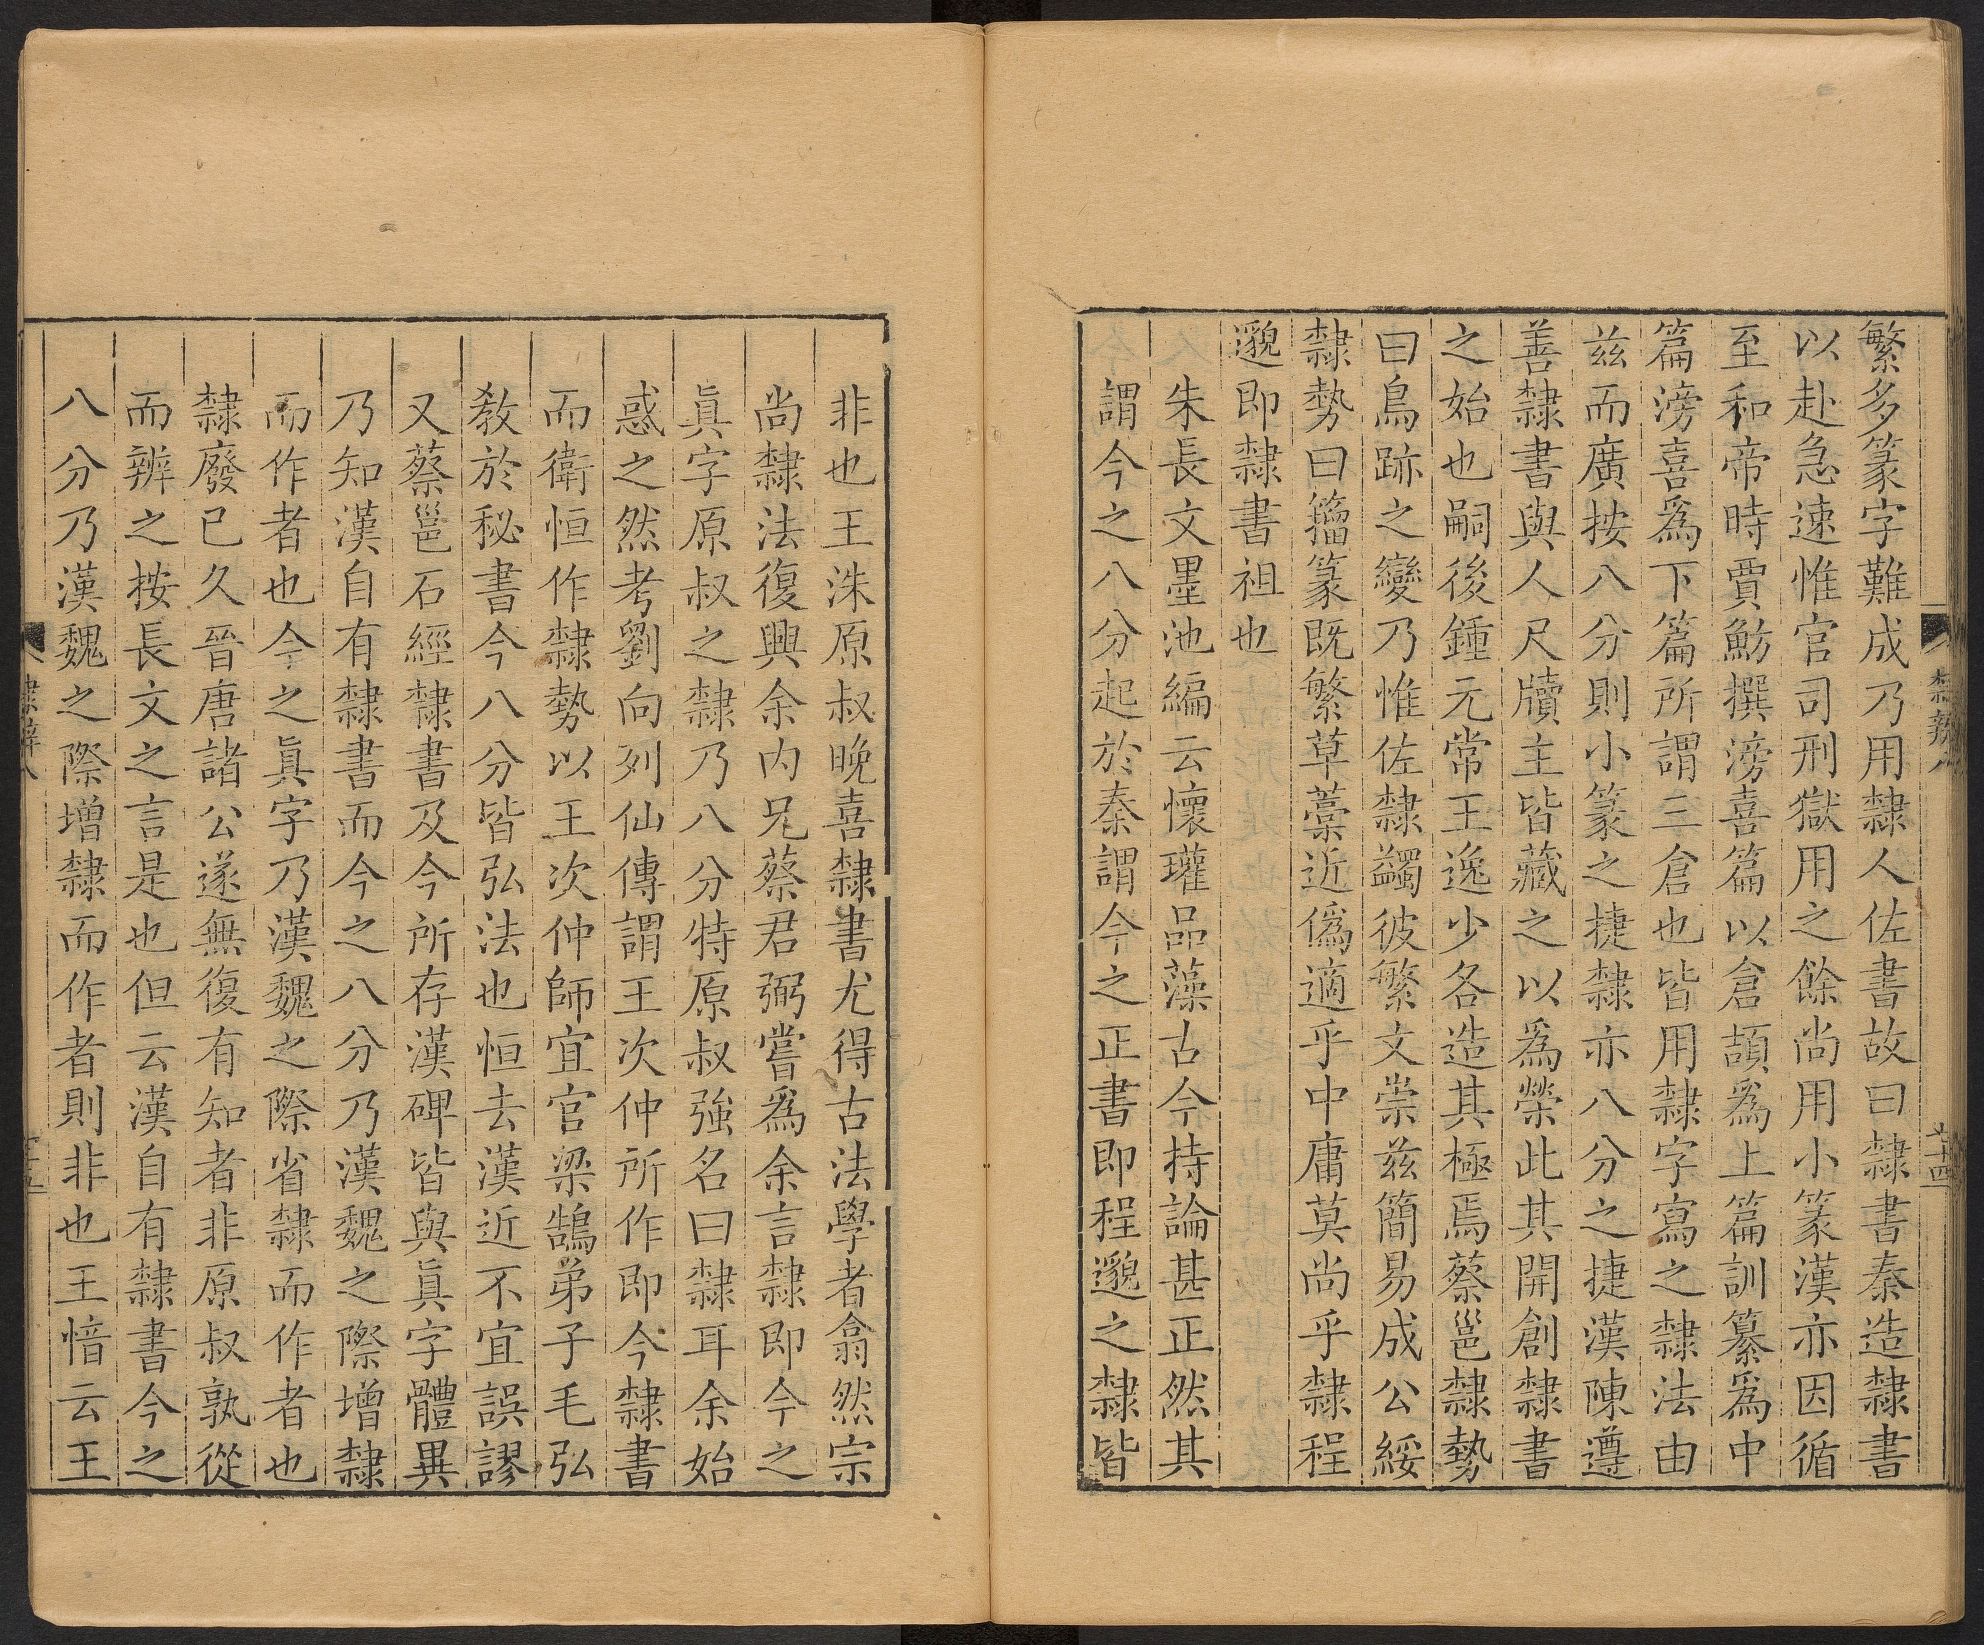 繁多篆字難成乃用隸人佐書故曰隸書秦造隸書
以赴急速惟官司刑獄用之餘尚用小篆漢亦因循
至和帝時賈魴撰滂喜篇以倉頡爲上篇訓纂爲中
篇滂喜爲下篇所謂三倉也皆用隸字寫之隸法由
茲而廣按八分則小篆之捷隸亦八分之捷漢陳遵
善隸書與人尺牘主皆藏之以爲榮此其開創隸書
之始也嗣後鍾元常王逸少各造其極焉蔡邕隸勢
曰鳥跡之變乃惟佐隸蠲彼繁文崇茲簡易成公綏
隸勢曰籀篆既繁草藁近僞適乎中庸莫尚乎隸程
邈即隸書祖也
朱長文墨池編云懷瓘品藻古今持論甚正然其
謂今之八分起於秦謂今之正書即程邈之隸皆
隸辨八
五十四
非也王洙原叔晚喜隸書尤得古法學者翕然宗
尚隸法復興余內兄蔡君弼嘗爲余言隸即今之
眞字原叔之隸乃八分特原叔強名曰隸耳余始
惑之然考劉向列仙傳謂王次仲所作即今隸書
而衛恒作隸勢以王次仲師宜官梁鵠弟子毛弘
教於秘書今八分皆弘法也恒去漢近不宜誤謬
又蔡邕石經隸書及今所存漢碑皆與眞字體異
乃知漢自有隸書而今之八分乃漢魏之際增隸
而作者也今之眞字乃漢魏之際省隸而作者也
隸廢已久晉唐諸公遂無復有知者非原叔孰從
而辨之按長文之言是也但云漢自有隸書今之
八分乃漢魏之際增隸而作者則非也王愔云王
隸辨八